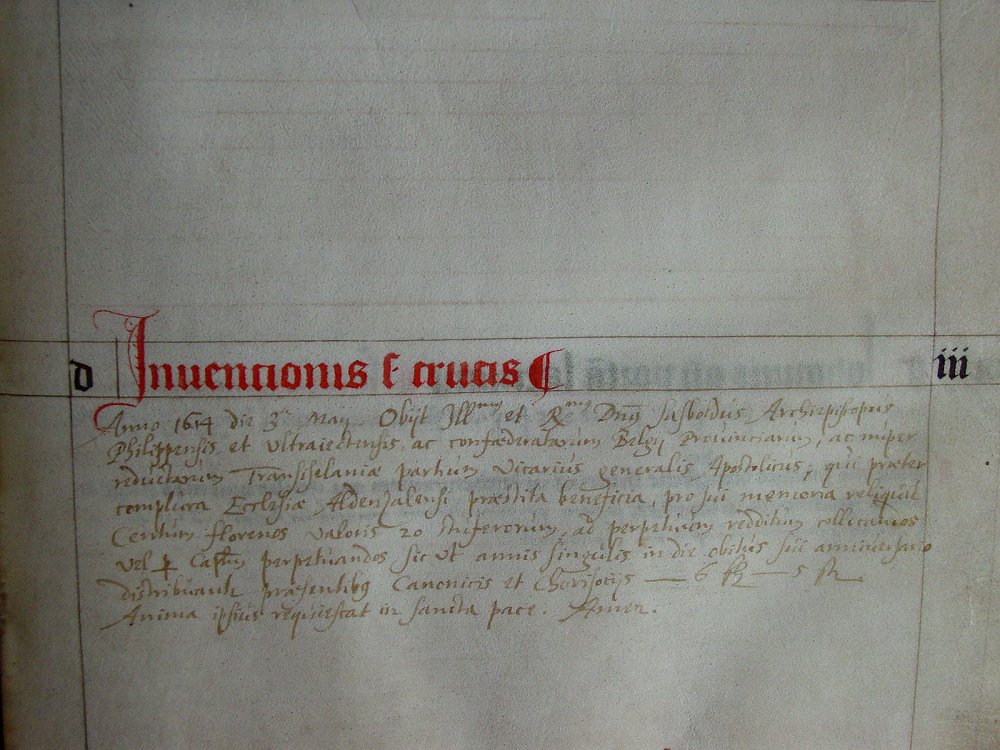 d Inuencionis s crucis iii
Anno 1614 die 3ᵃ Maij Obijt Illᵐᵘˢ et Rᵐᵘˢ Dnus Sasboldus Archiepiscopus
Philippensis et Ultraiectensis, ac confæderatarum Belgij Prouinciarum, ac nuper
reductarum Transiselaniæ partium Vicarius generalis Apostolicus, qui præter
complura Ecclesiæ Aldenzalensi præstita beneficia, pro sui memoria reliquit
Centum florenos valoris 20 stuferorum, ad perpetuum redditum collocandos
vel Captm perpetuandos sic ut annis singulis in die obitus sui anniuersario
distribuantur præsentibus Canonicis et Chorisocijs — 6 — 5
Anima ipsius requiescat in sancta pace. Amen.